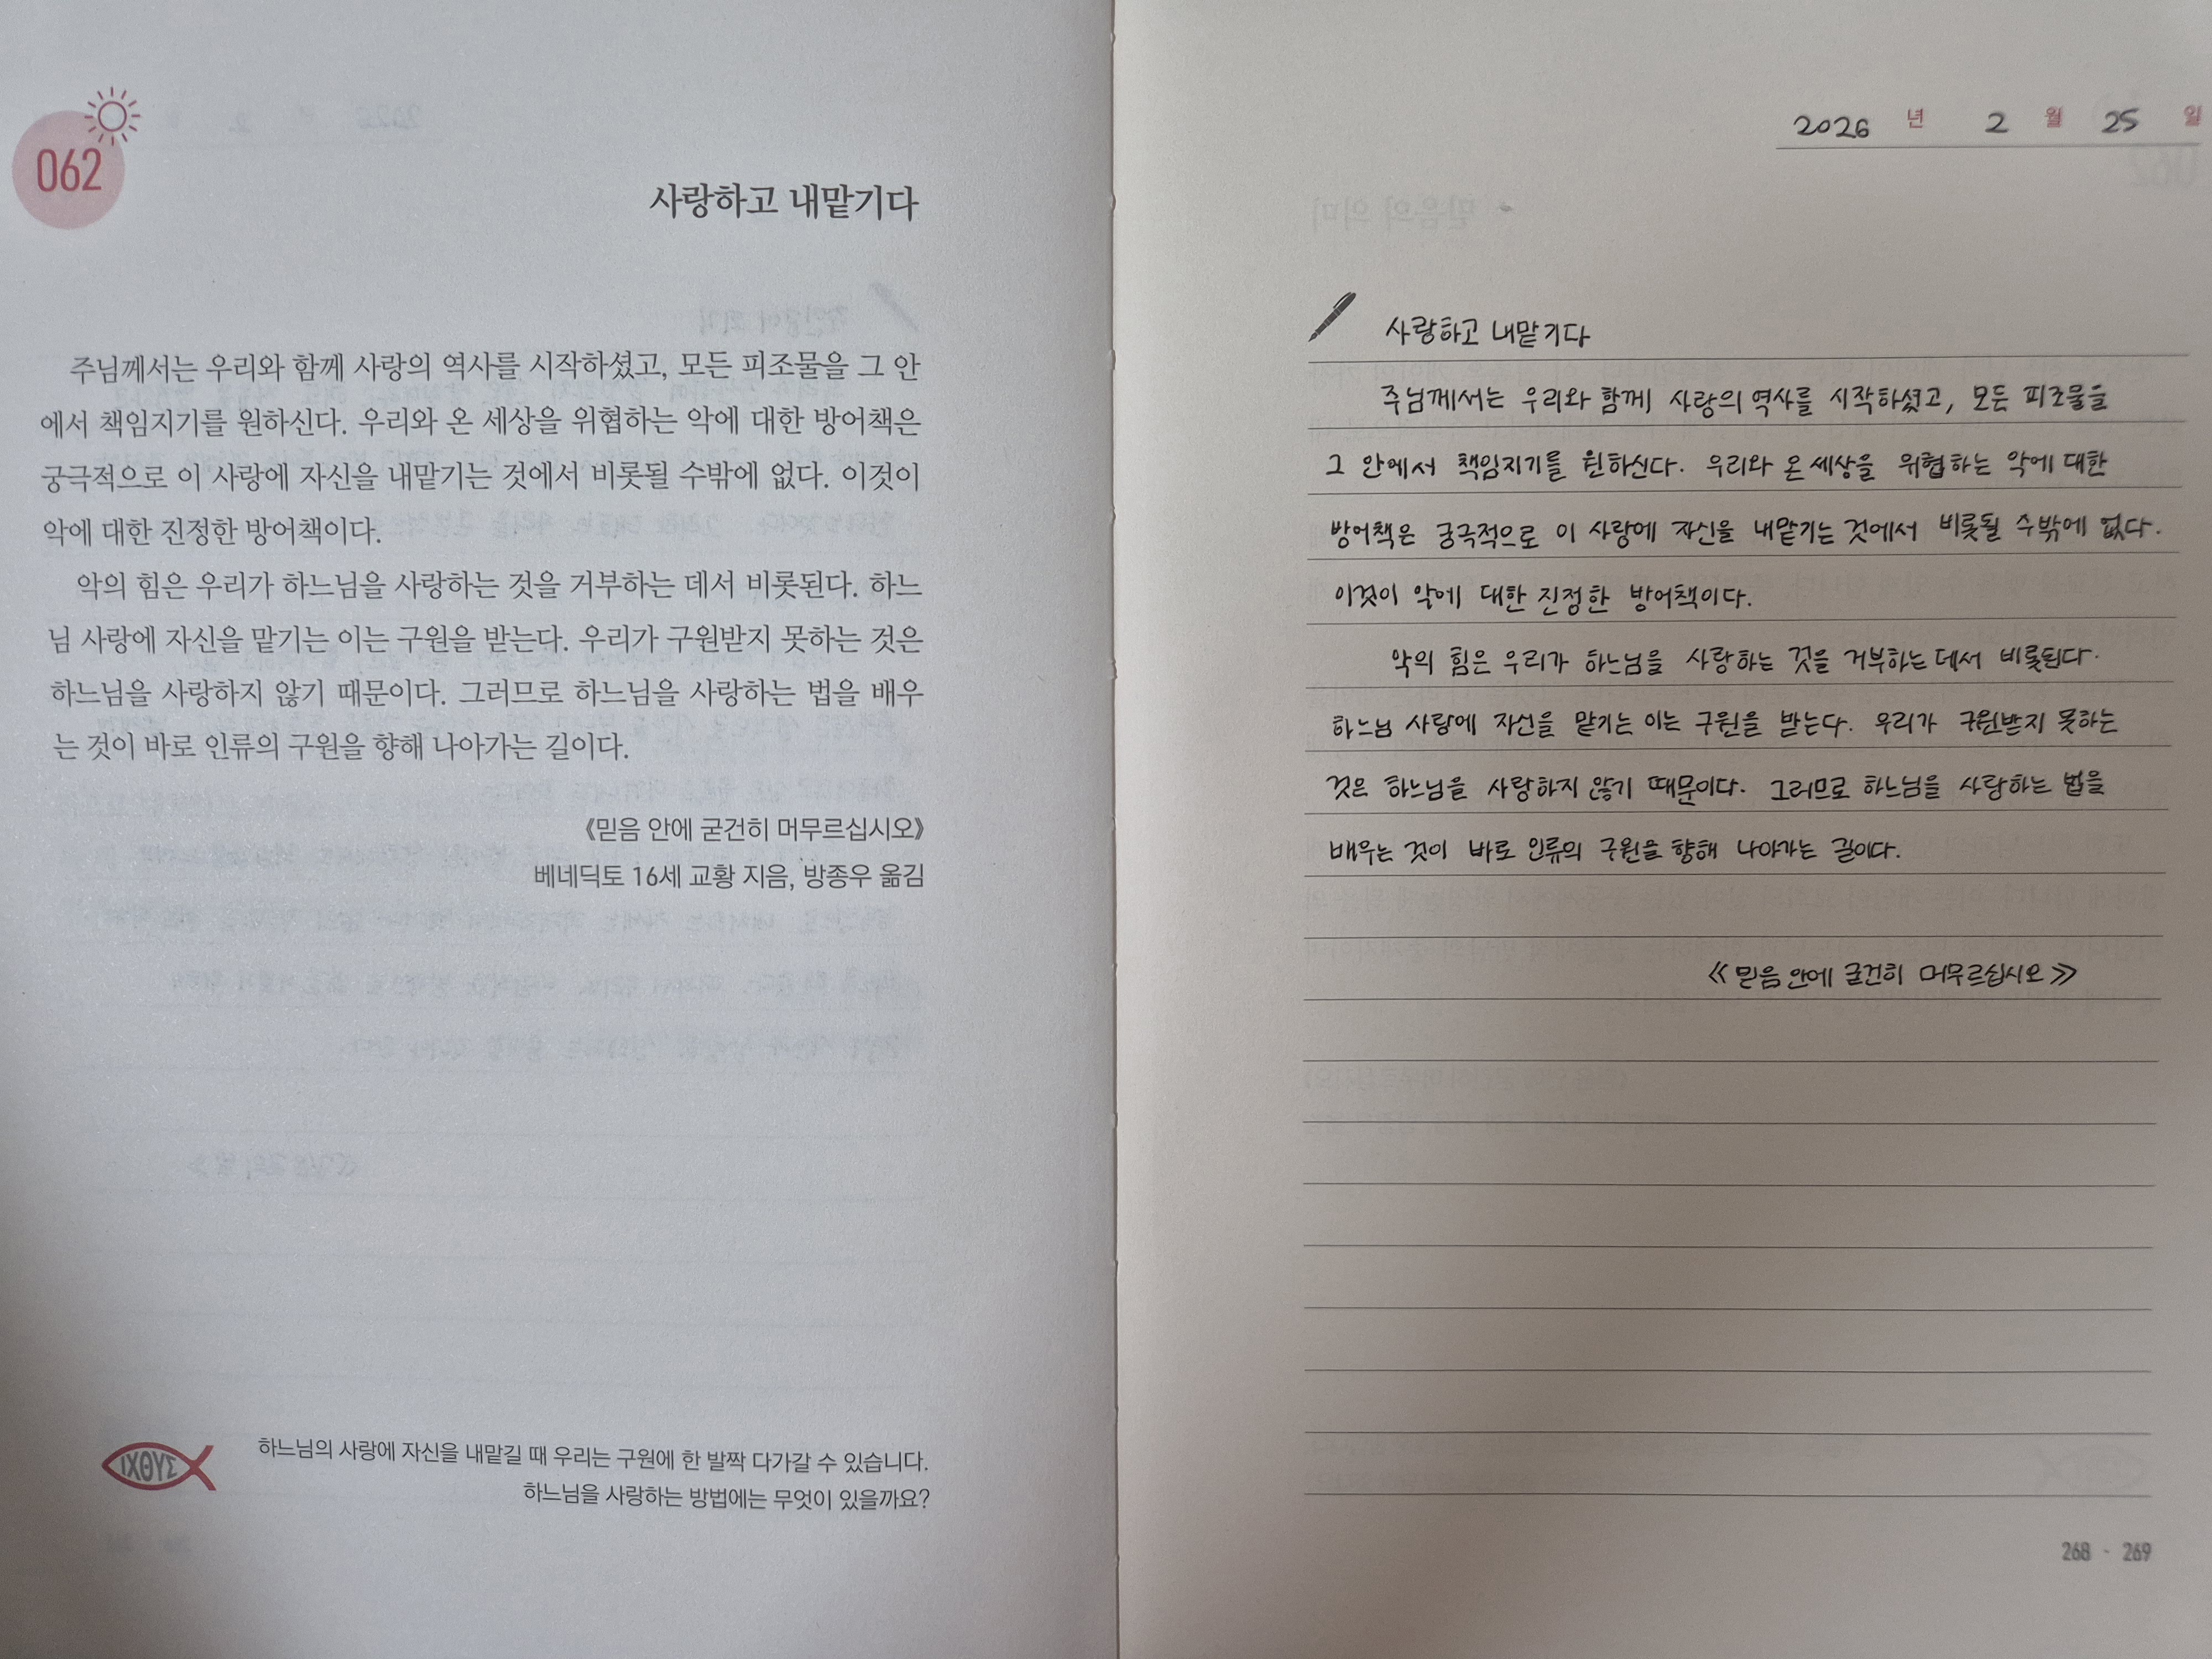 062
사랑하고 내맡기다
주님께서는 우리와 함께 사랑의 역사를 시작하셨고, 모든 피조물을 그 안
에서 책임지기를 원하신다. 우리와 온 세상을 위협하는 악에 대한 방어책은
궁극적으로 이 사랑에 자신을 내맡기는 것에서 비롯될 수밖에 없다. 이것이
악에 대한 진정한 방어책이다.
악의 힘은 우리가 하느님을 사랑하는 것을 거부하는 데서 비롯된다. 하느
님 사랑에 자신을 맡기는 이는 구원을 받는다. 우리가 구원받지 못하는 것은
하느님을 사랑하지 않기 때문이다. 그러므로 하느님을 사랑하는 법을 배우
는 것이 바로 인류의 구원을 향해 나아가는 길이다.
《믿음 안에 굳건히 머무르십시오》
베네딕토 16세 교황 지음, 방종우 옮김
ΙΧΘΥΣ
하느님의 사랑에 자신을 내맡길 때 우리는 구원에 한 발짝 다가갈 수 있습니다.
하느님을 사랑하는 방법에는 무엇이 있을까요?
2026 년 2 월 25 일
사랑하고 내맡기다
주님께서는 우리와 함께 사랑의 역사를 시작하셨고, 모든 피조물을
그 안에서 책임지기를 원하신다. 우리와 온 세상을 위협하는 악에 대한
방어책은 궁극적으로 이 사랑에 자신을 내맡기는 것에서 비롯될 수밖에 없다.
이것이 악에 대한 진정한 방어책이다.
악의 힘은 우리가 하느님을 사랑하는 것을 거부하는 데서 비롯된다.
하느님 사랑에 자신을 맡기는 이는 구원을 받는다. 우리가 구원받지 못하는
것은 하느님을 사랑하지 않기 때문이다. 그러므로 하느님을 사랑하는 법을
배우는 것이 바로 인류의 구원을 향해 나아가는 길이다.
《믿음 안에 굳건히 머무르십시오》
268 - 269